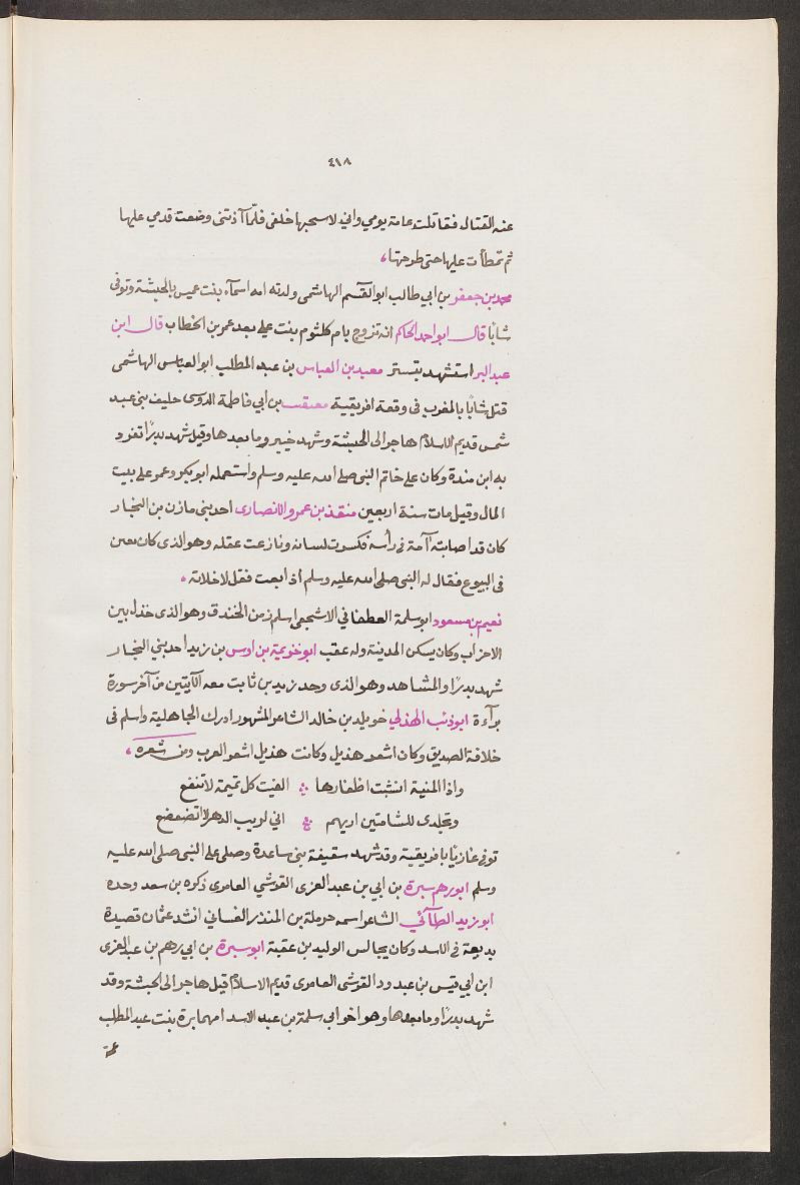 ٤١٨
عنه القتال فقاتلت عامة يومي واني لاسحبها خلفى فلمّا آذتنى وضعت قدمي عليها
ثم تمطأت عليها حتى طرحتها،
محمد بن جعفر بن ابي طالب ابو القسم الهاشمى ولدته امه اسمآء بنت عميس بالحبشة وتوفى
شابًا قال ابو احمد الحاكم انه تزوج بام كلثوم بنت علي بعد عمر بن الخطاب قال ابن
عبد البر استشهد بتستر معبد بن العباس بن عبد المطلب ابو العباس الهاشمى
قتل شابًا بالمغرب فى وقعة افريقية معيقب بن أبي فاطمة الدوسى حليف بنى عبد
شمس قديم الاسلام هاجر الى الحبشة وشهد خيبر وما بعدها وقيل شهد بدرًا تفرد
به ابن مندة وكان على خاتم النبى صلى الله عليه وسلم واستعمله ابو بكر وعمر على بيت
المال وقيل مات سنة اربعين منقذ بن عمرو الانصارى احد بني مازن بن النجار
كان قد اصابته آمة فى رأسه فكسرت لسانه ونازعت عقله وهو الذى كان يغبن
فى البيوع فقال له النبى صلى الله عليه وسلم اذا بعت فقل لا خلابة
نعيم بن مسعود ابو سلمة الغطفاني الاشجعي اسلم زمن الخندق وهو الذى خذل بين
الاحزاب وكان يسكن المدينة وله عقب ابو خزيمة بن اوس بن زيد احد بني النجار
شهد بدرًا والمشاهد وهو الذى وجد زيد بن ثابت معه الآيتين من آخر سورة
برآءة ابو ذئب الهذلي خويلد بن خالد الشاعر المشهور ادرك الجاهلية واسلم فى
خلافة الصديق وكان اشعر هذيل وكانت هذيل اشعر العرب ومن شعره،
واذا المنية انشبت اظفارها الفيت كل تميمة لا تنفع
وتجلدى للشامتين اريهم اني لريب الدهر لا اتضعضع
توفى غازيًا بافريقية وقد شهد سقيفة بنى ساعدة وصلى على النبى صلى الله عليه
وسلم ابو رهم سبرة بن أبي بن عبد العزى القرشي العامرى ذكره بن سعد وحده
ابو زيد الطآئي الشاعر اسمه حرملة بن المنذر الغساني انشد عثمان قصيدة
بديعة فى الاسد وكان يجالس الوليد بن عقبة ابو سبرة بن ابي رهم بن عبد العزى
ابن أبي قيس بن عبد ود القرشى العامرى قديم الاسلام قيل هاجر الى الحبشة وقد
شهد بدرًا وما بعدها وهو اخو ابي سلمة بن عبد الاسد امهما برة بنت عبد المطلب